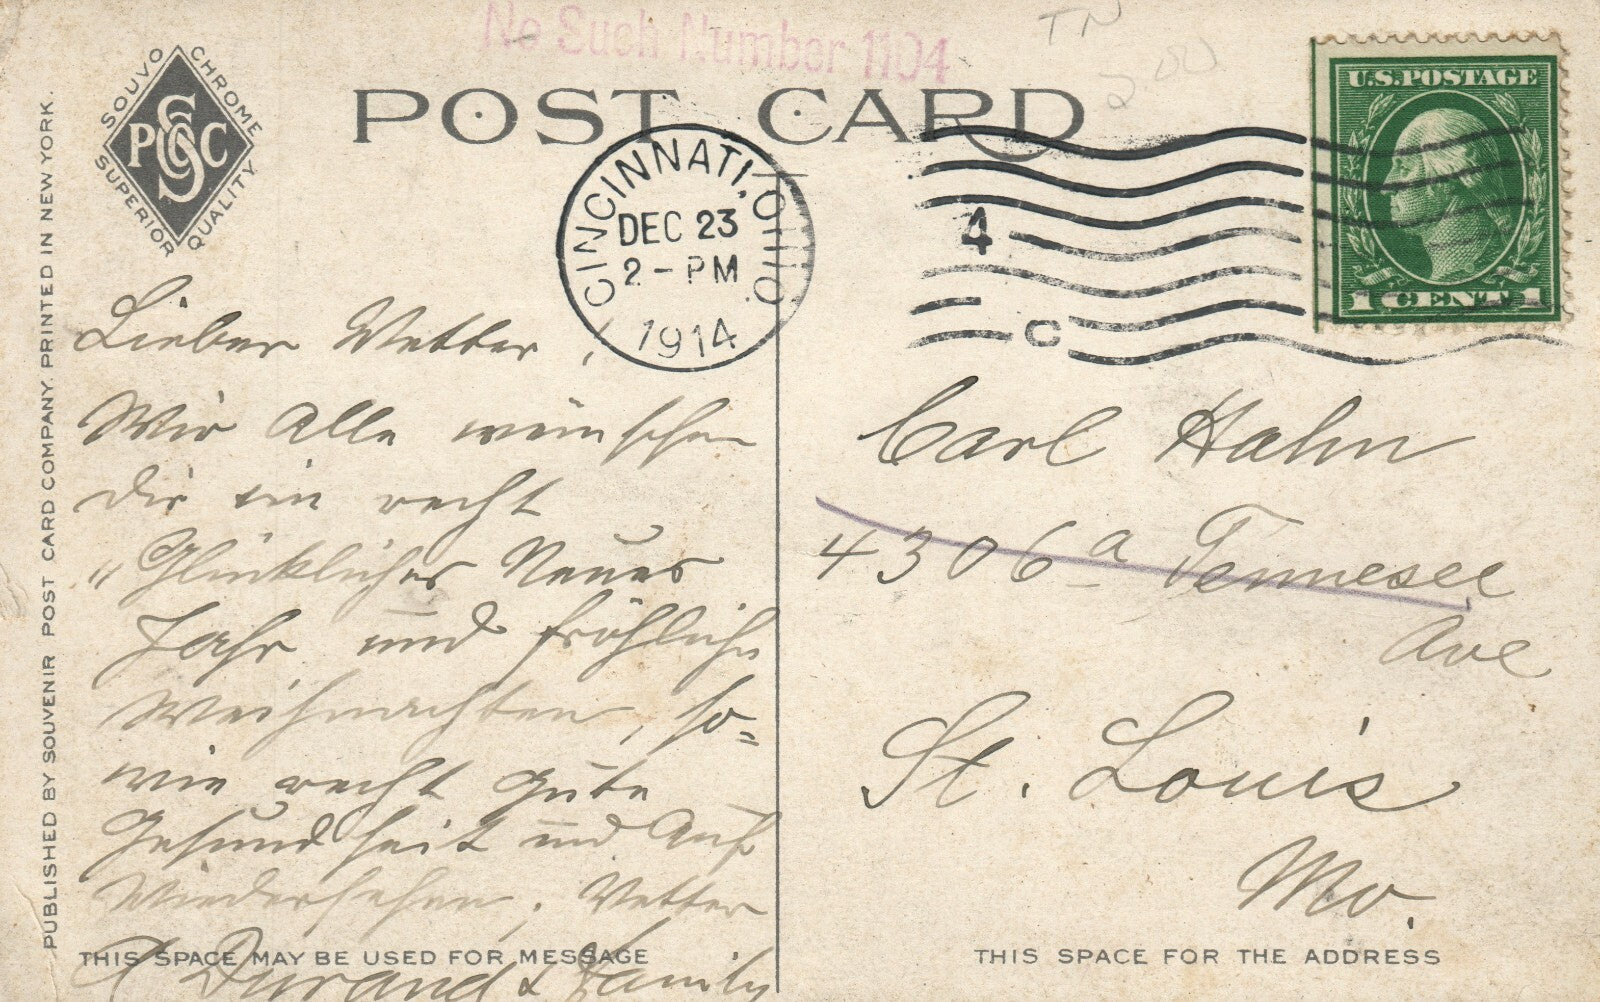 No Such Number 1104
TN
2.00
POST CARD
SOUVO CHROME
SUPERIOR QUALITY
PSC&C
PUBLISHED BY SOUVENIR POST CARD COMPANY. PRINTED IN NEW YORK.
CINCINNATI, OHIO
DEC 23
2 - PM
1914
4
C
U.S. POSTAGE
1 CENT 1
Lieber Vetter,
Wir Alle wünschen
Dir ein recht
„Glückliches Neues
Jahr und fröhliche
Weihnachten, so=
wie recht gute
Gesundheit und Auf
Wiedersehen, Vetter
Durand & Family
THIS SPACE MAY BE USED FOR MESSAGE
Carl Hahn
4306a Tennesee
Ave
St. Louis
Mo.
THIS SPACE FOR THE ADDRESS